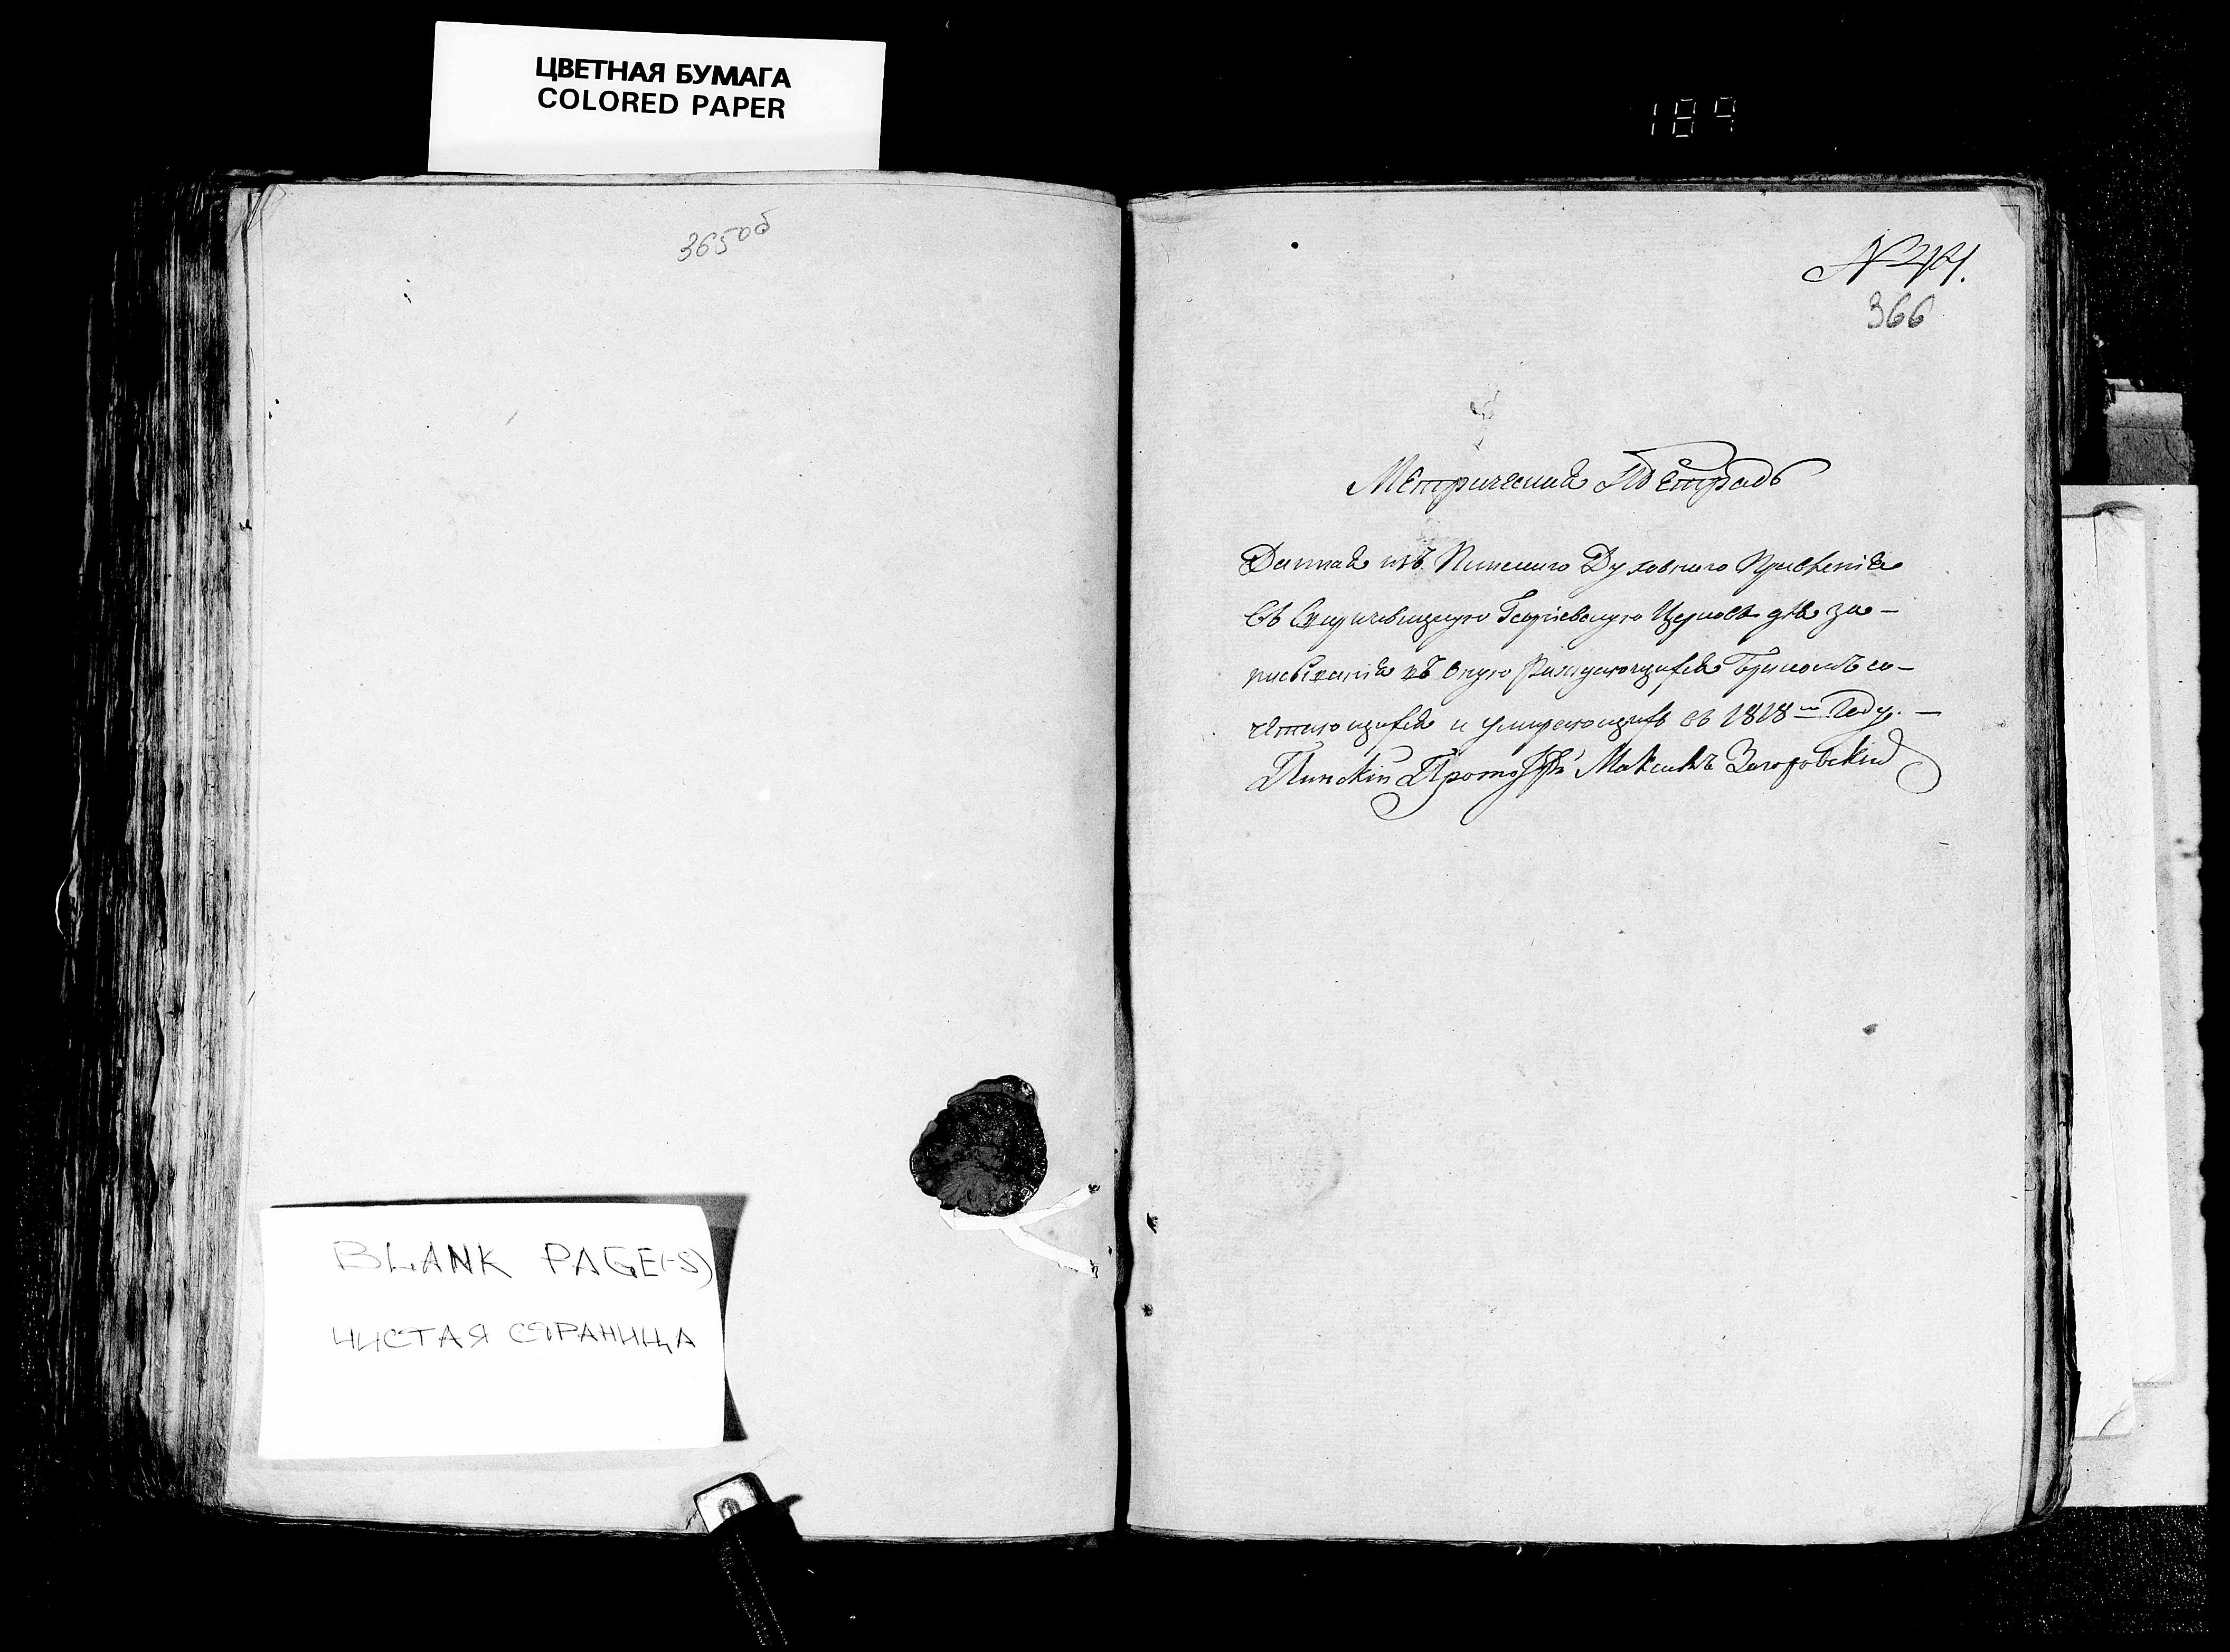 ЦВЕТНАЯ БУМАГА
COLORED PAPER
189
365об
366
Метрическая Тетрадь
Данная изъ Пинскаго Духовнаго Правленія
въ Георгіевскую Церковь для за-
писыванія въ оную раждающихся Бракомъ со-
четающихся и умирающихъ въ 1818 м Году. —
Пинскій Максимъ Загоровскій
BLANK PAGE(-S)
ЧИСТАЯ СТРАНИЦА